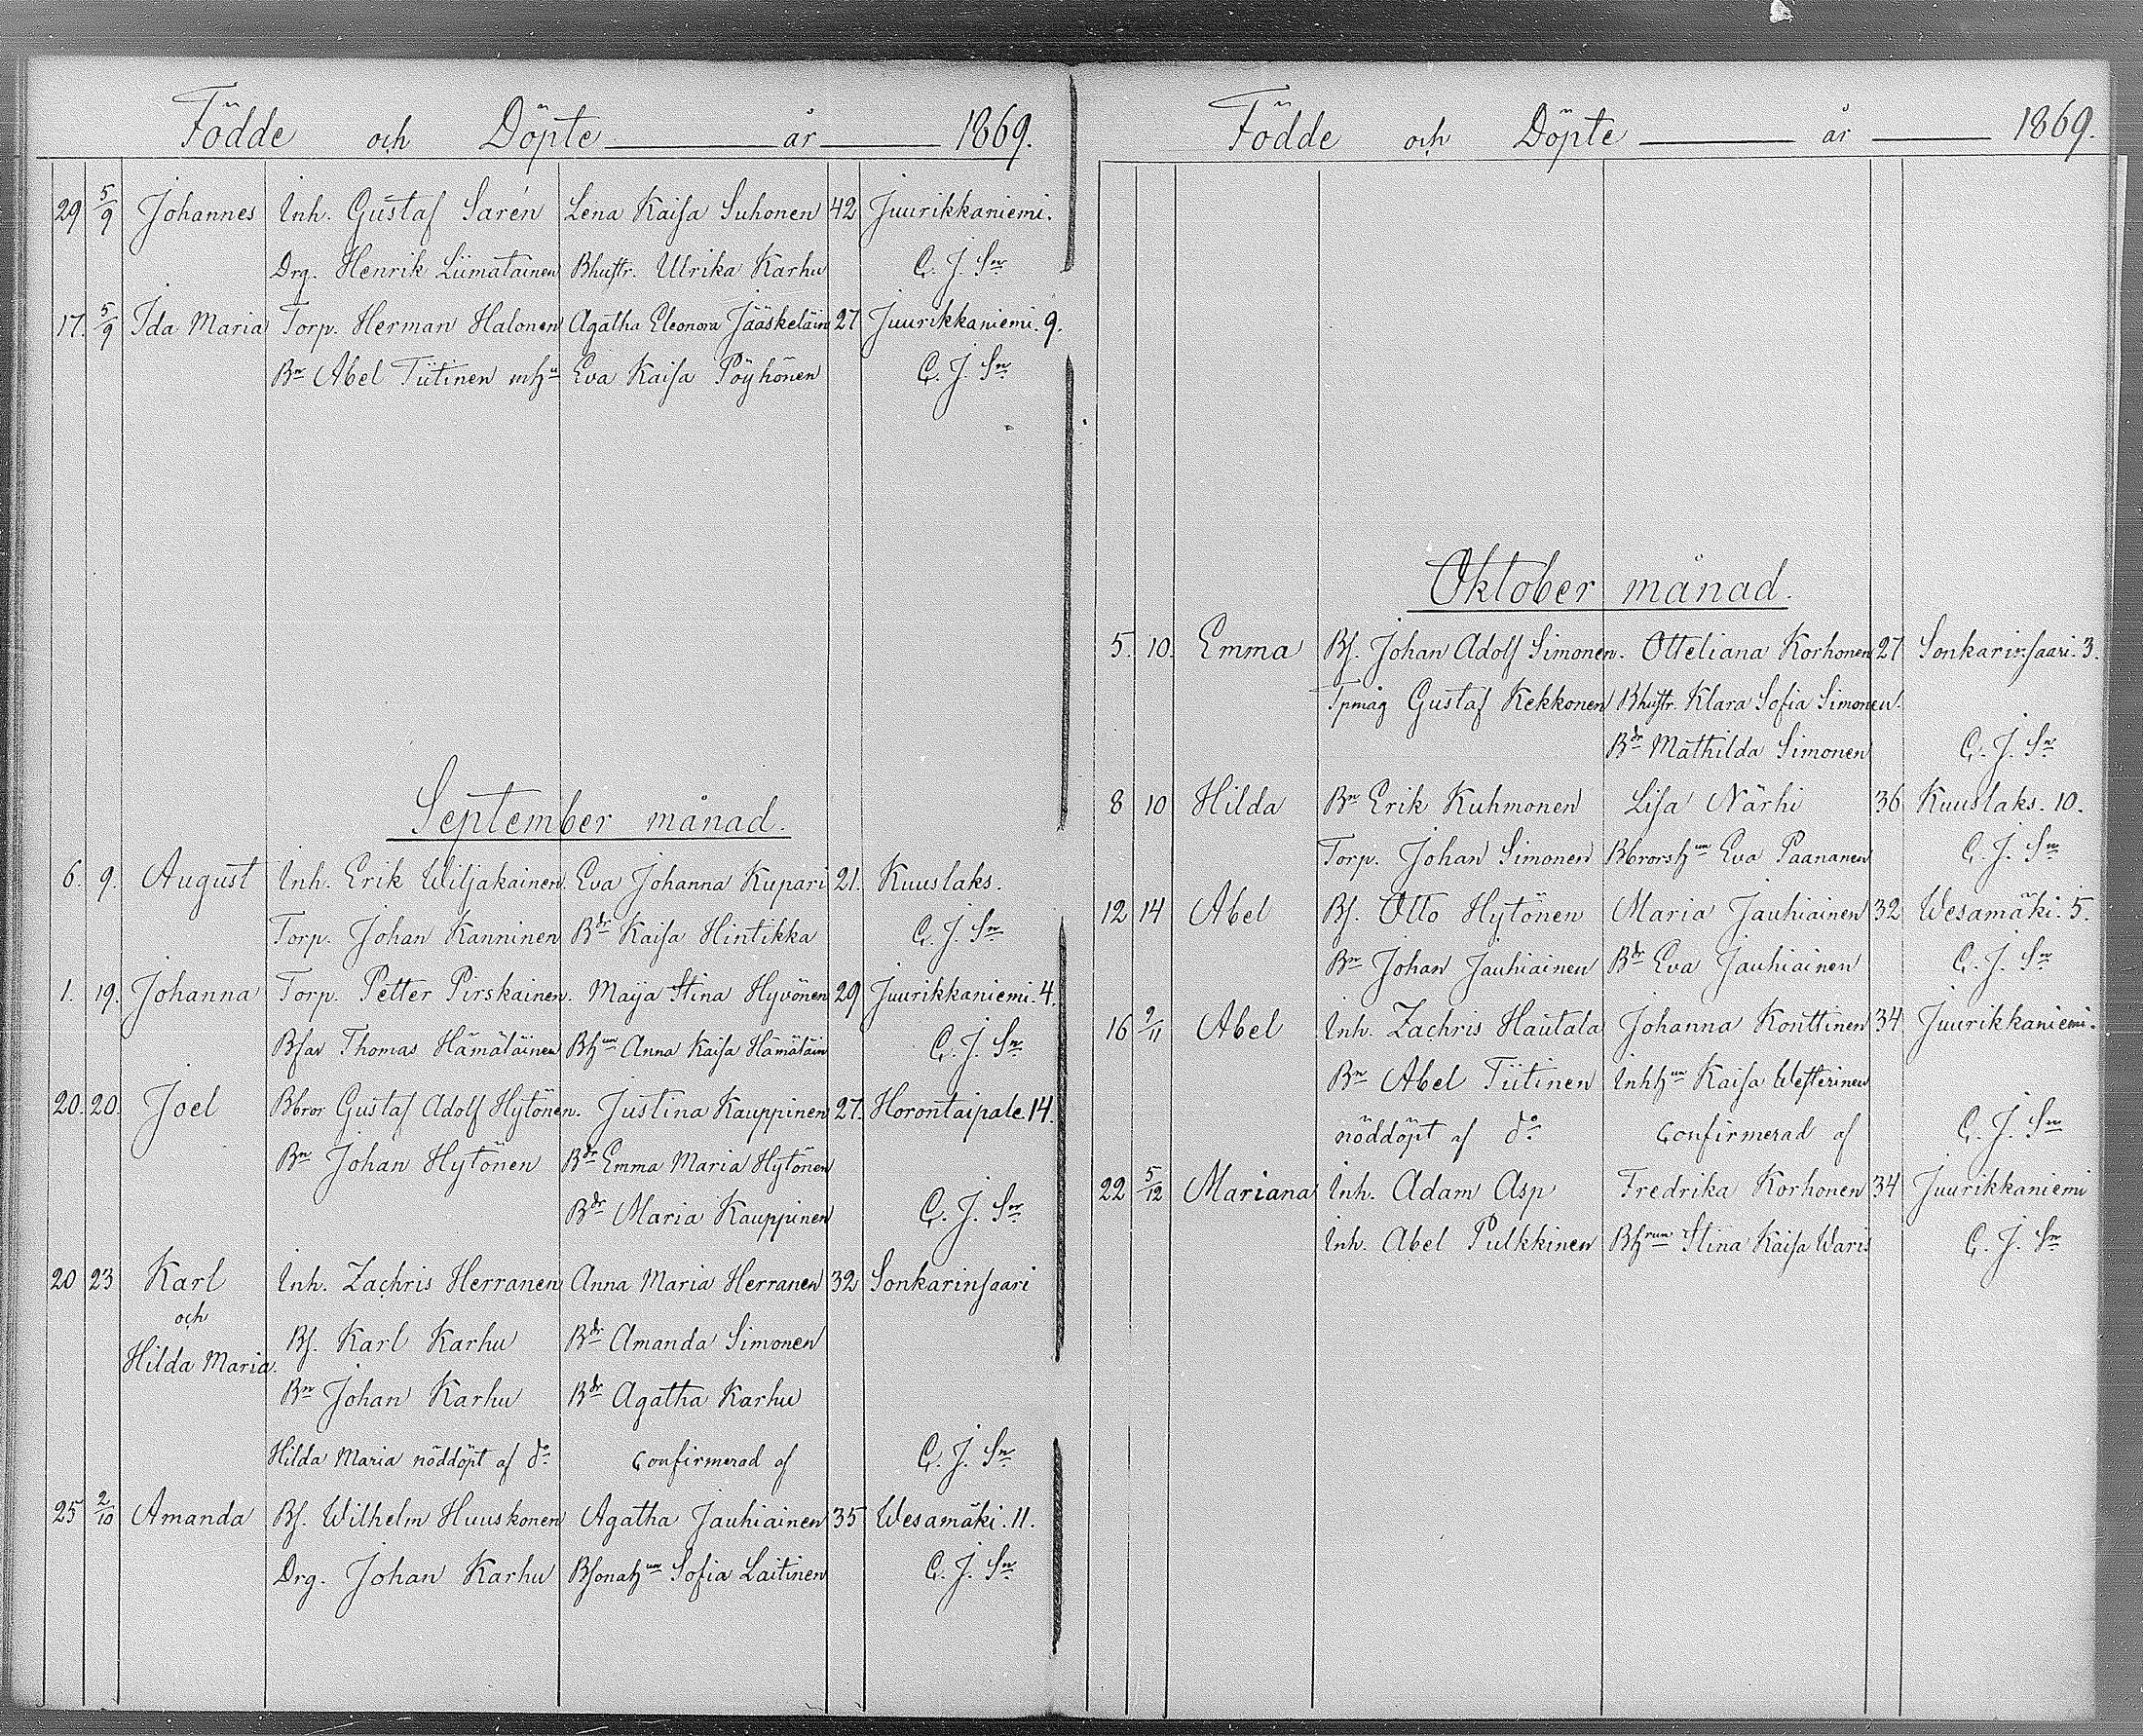 Födde och Döpte år 1869.
29 5/9 Johannes Inh. Gustaf Sarén Lena Kaisa Suhonen 42 Juurikkaniemi.
Drg. Henrik Liimatainen Bhustr. Ulrika Karhu C. J. Sn
17. 5/9 Ida Maria Torp. Herman Halonen Agatha Eleonora Jääskeläin 27 Juurikkaniemi. 9.
Bn Abel Tiitinen mhu Eva Kaisa Pöyhönen C. J. Sn
September månad.
6. 9. August Inh. Erik Wiljakainen. Eva Johanna Kupari 21. Kuuslaks.
Torp. Johan Kanninen Bdr Kaisa Hintikka C. J. Sn
1. 19. Johanna Torp. Petter Pirskainen. Maija Stina Hyvönen 29 Juurikkaniemi. 4.
Bfar Thomas Hämäläinen Bhun Anna Kaisa Hämäläin C. J. Sn
20. 20. Joel Bbror Gustaf Adolf Hytönen. Justina Kauppinen 27. Horontaipale. 14.
Bn Johan Hytönen Bdr Emma Maria Hytönen
Bdr Maria Kauppinen C. J. Sn
20 23 Karl Inh. Zachris Herranen Anna Maria Herranen 32 Sonkarinsaari
och
Hilda Maria. Bs. Karl Karhu Bdr Amanda Simonen
Bn Johan Karhu Bdr Agatha Karhu
Hilda Maria nöddöpt af do Confirmerad af C. J. Sn
25 2/10 Amanda Bs. Wilhelm Huuskonen Agatha Jauhiainen 35 Wesamäki. 11.
Drg. Johan Karhu Bsonahun Sofia Laitinen C. J. Sn
Födde och Döpte år 1869.
Oktober månad.
5. 10. Emma Bs. Johan Adolf Simonen. Otteliana Korhonen 27 Sonkarinsaari. 3.
Tpmåg Gustaf Kekkonen Bhustr. Klara Sofia Simonen.
Bdr Mathilda Simonen C. J. Sn
8 10 Hilda Bn Erik Kuhmonen Lisa Närhi 36 Kuuslaks. 10.
Torp. Johan Simonen Bbrorshun Eva Paananen C. J. Sn
12 14 Abel Bs. Otto Hytönen Maria Jauhiainen 32 Wesamäki. 5.
Bn Johan Jauhiainen Bdr Eva Jauhiainen C. J. Sn
16 9/11 Abel Inh. Zachris Hautala Johanna Konttinen 34 Juurikkaniemi.
Bn Abel Tiitinen Inhhun Kaisa Westerinen
nöddöpt af do Confirmerad af C. J. Sn
22 5/12 Mariana Inh. Adam Asp Fredrika Korhonen 34 Juurikkaniemi
Inh. Abel Pulkkinen Bhrun Stina Kaisa Waris C. J. Sn